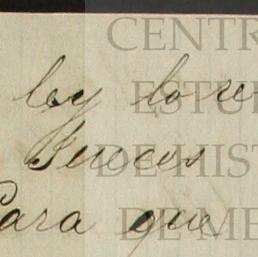 CENTR
ley lo re
ESTU
Jueces
DE HIST
Para que
DE ME